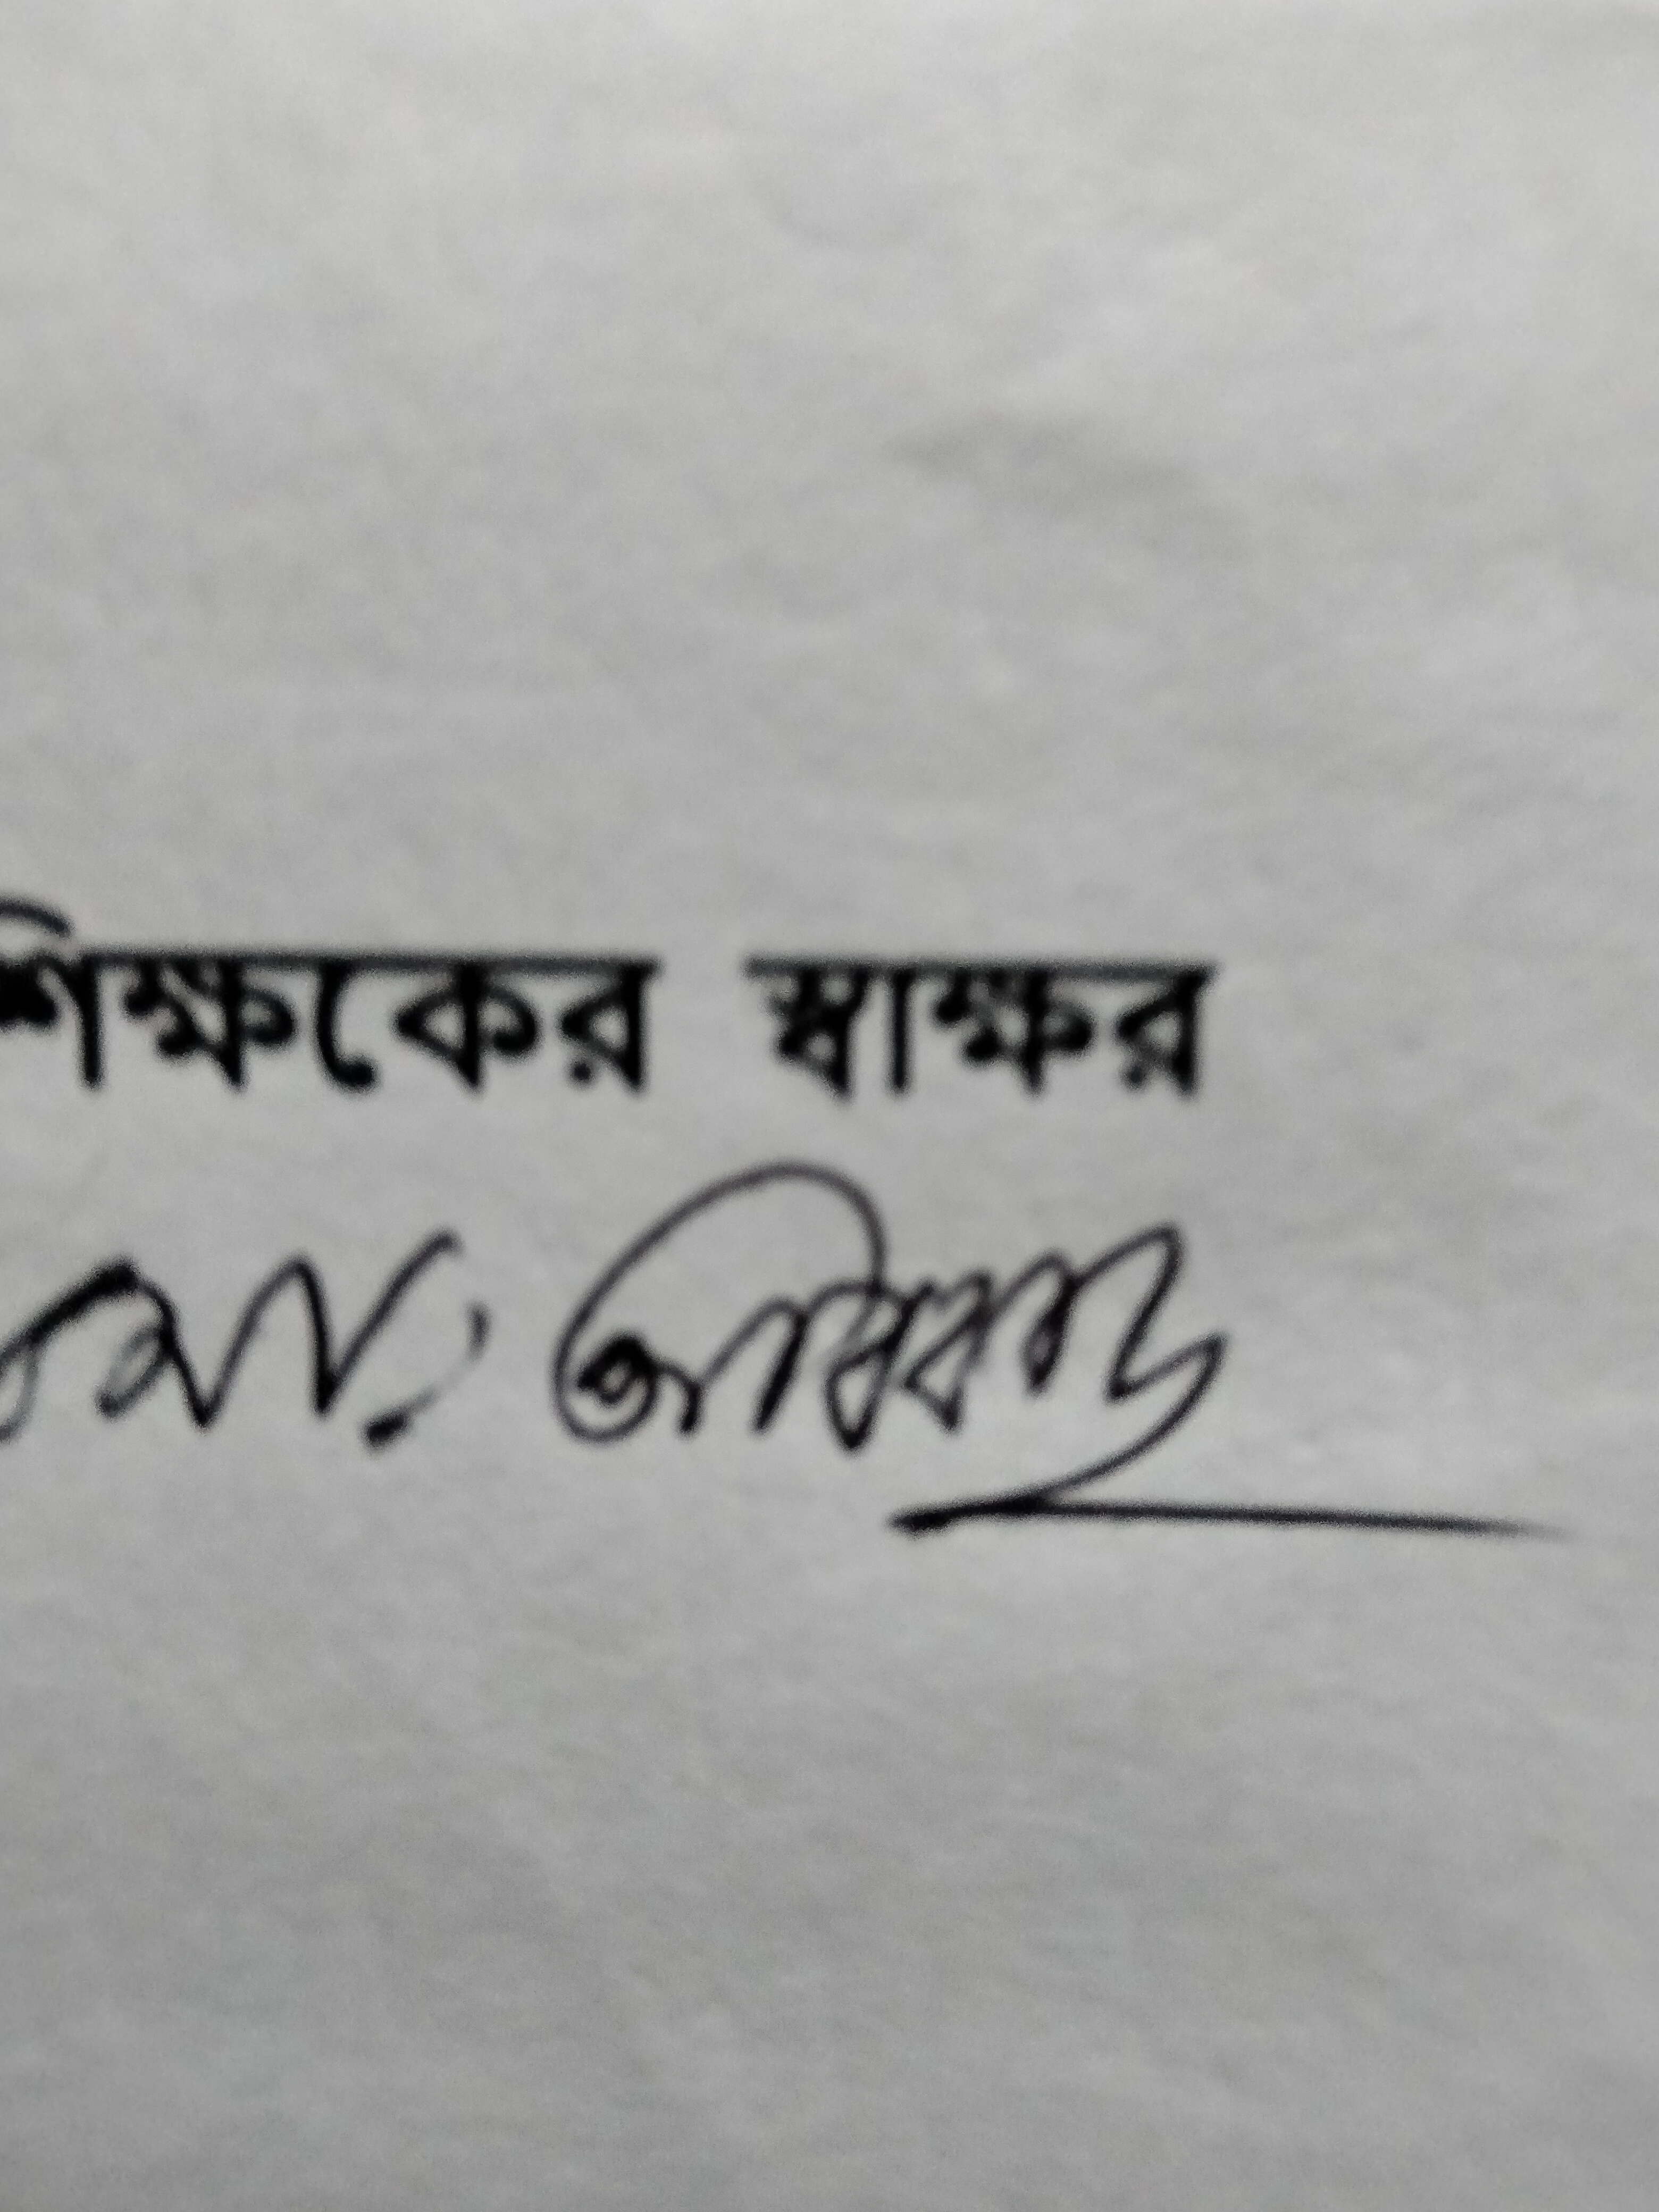 শিক্ষকের স্বাক্ষর
মো: